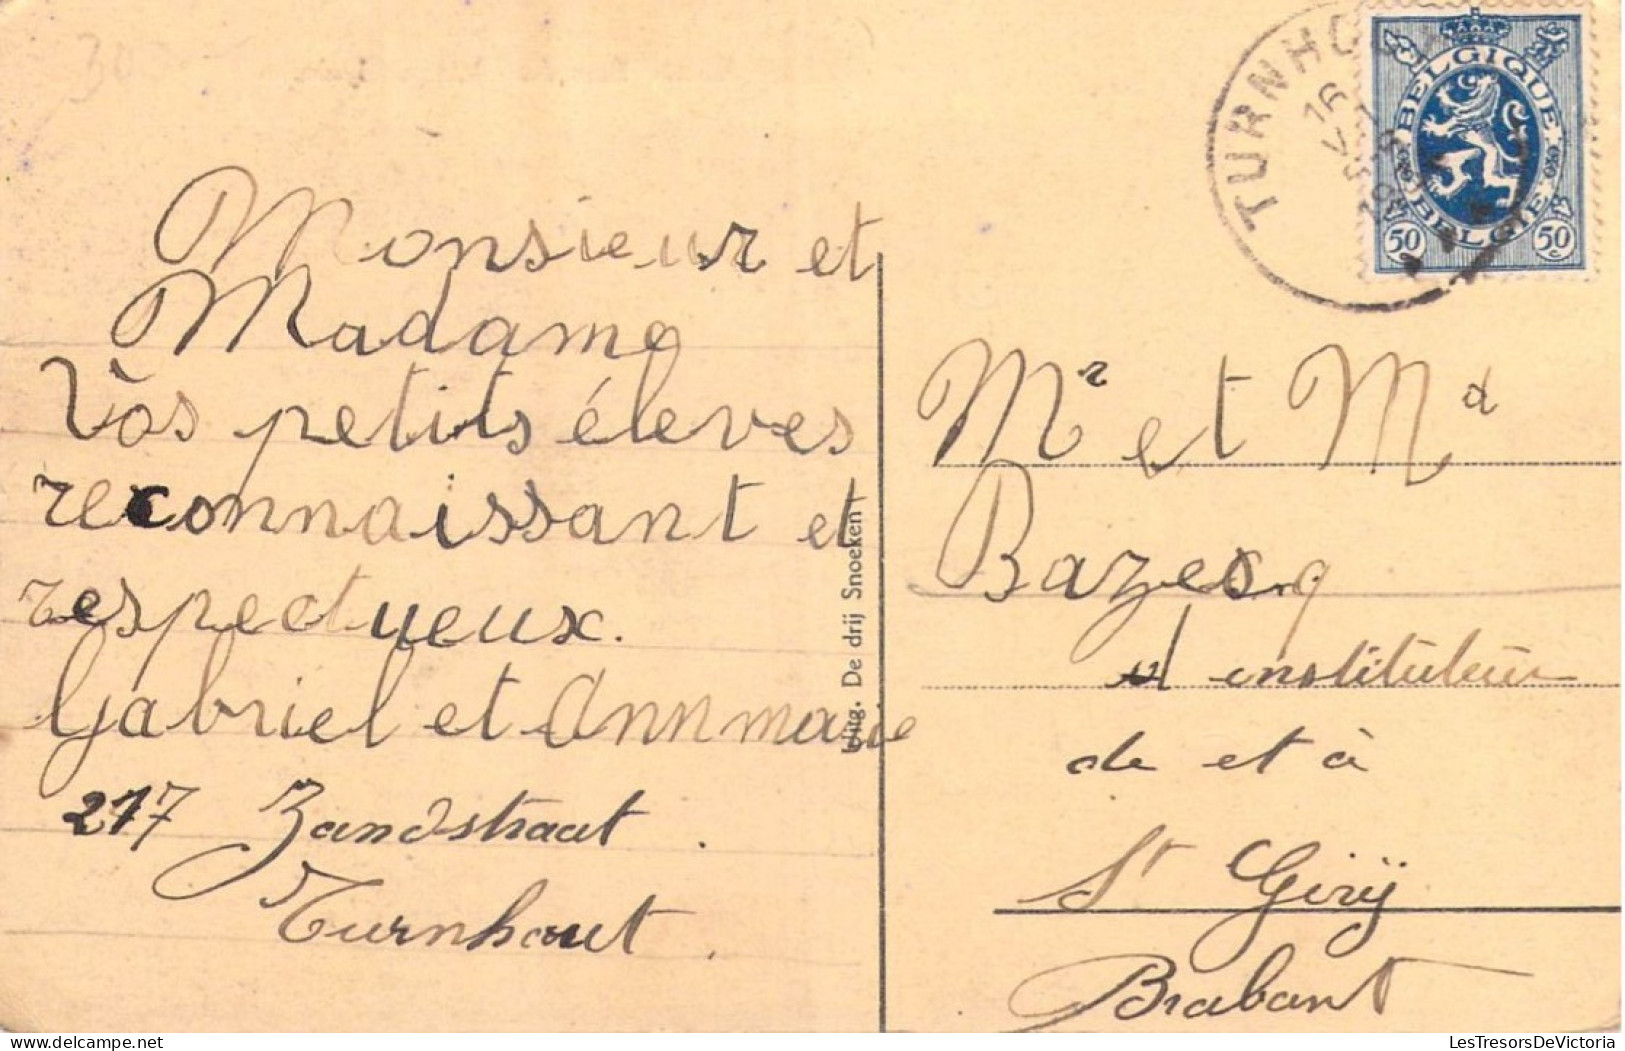 Monsieur et
Madame
Vos petits élèves
reconnaissant et
respectueux.
Gabriel et Annmarie
217 Zandstraat.
Turnhout.
Uitg. De drij Snoeken
TURNHO
16
BELGIQUE
BELGIE
50 50
c c
Mr et Md
Bazesq
instituteur
de et à
St Gérij
Brabant
www.LesTresorsDeVictoria.com